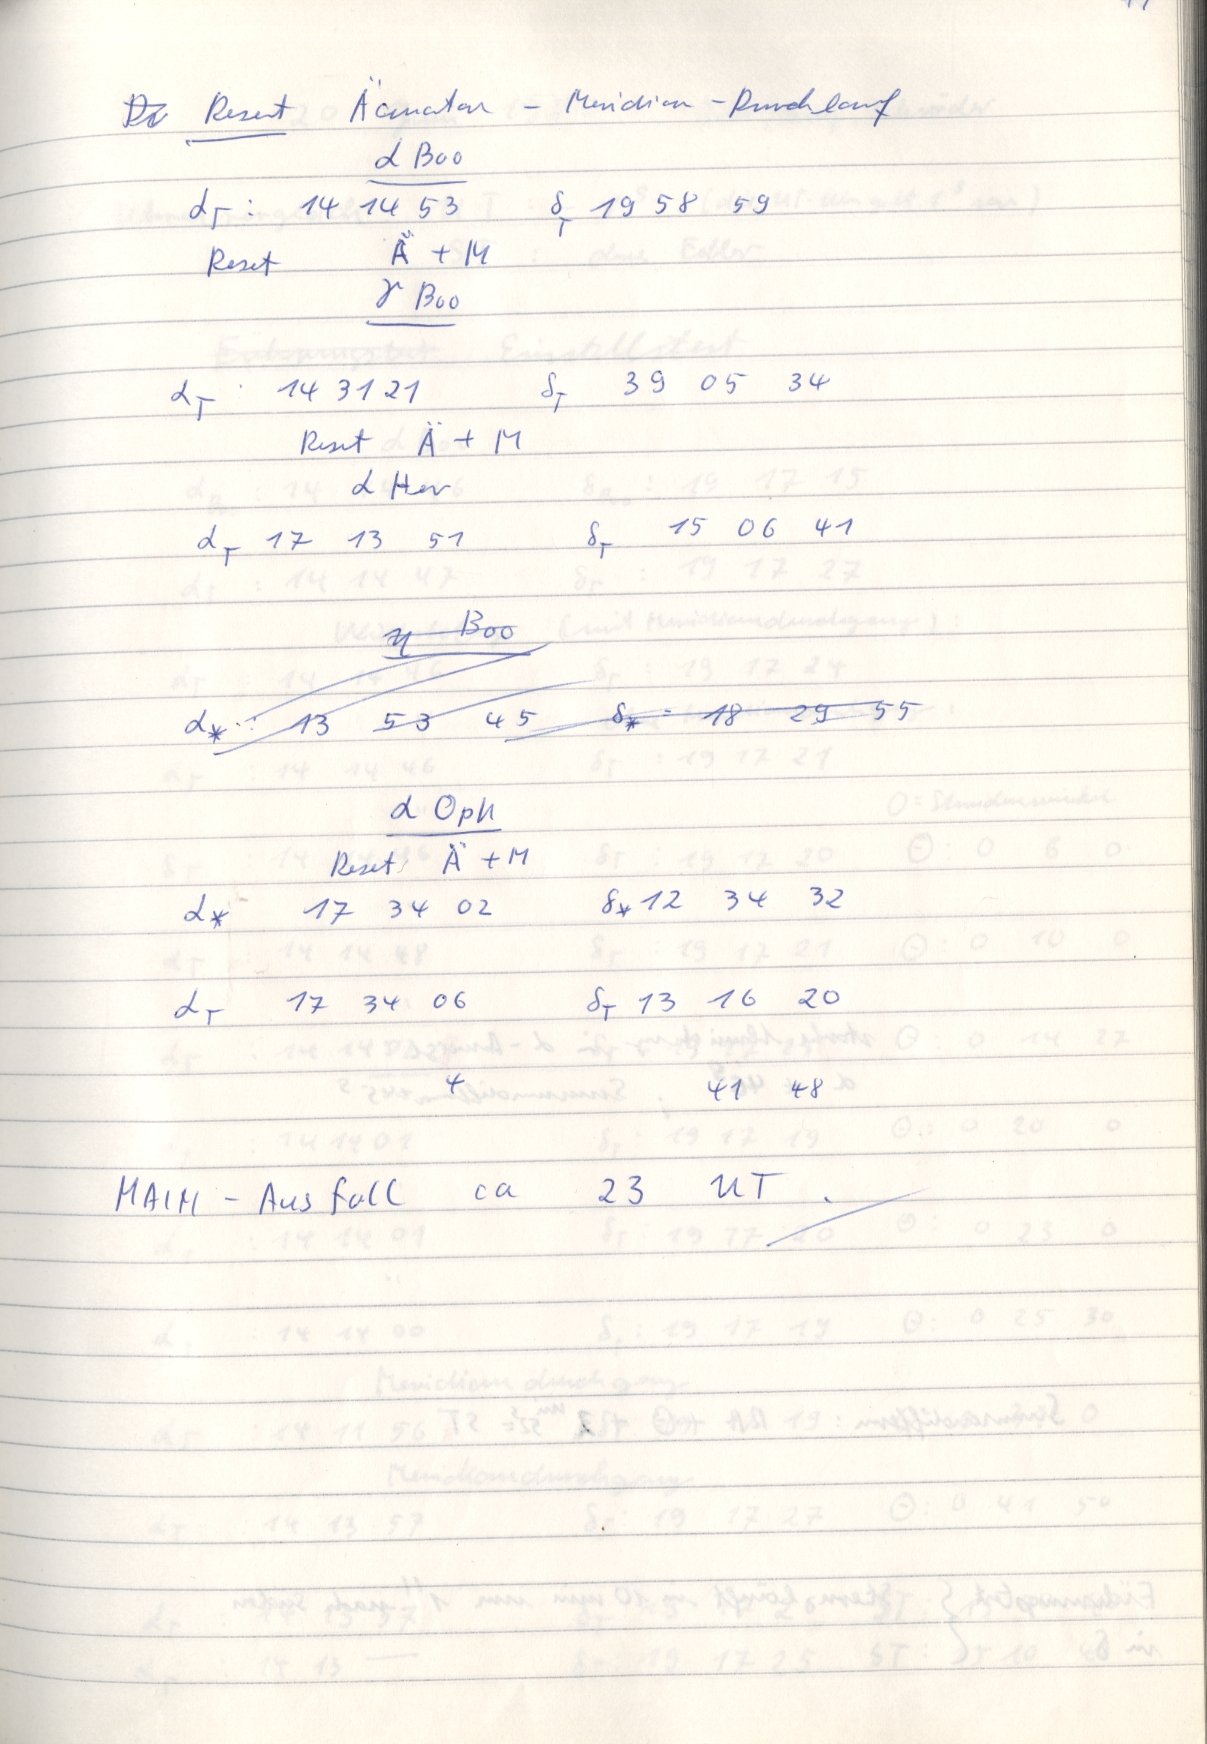 Reset Äquator - Meridian - Durchlauf
α Boo
α_T : 14 14 53 δ_T 19 58 59
Reset Ä + M
γ Boo
α_T : 14 31 21 δ_T 39 05 34
Reset Ä + M
α Her
α_T 17 13 51 δ_T 15 06 41
η Boo
α* : 13 53 45 δ* = 18 29 55
α Oph
Reset Ä + M
α* 17 34 02 δ* 12 34 32
α_T 17 34 06 δ_T 13 16 20
4 41 48
MAIN - Ausfall ca 23 UT .